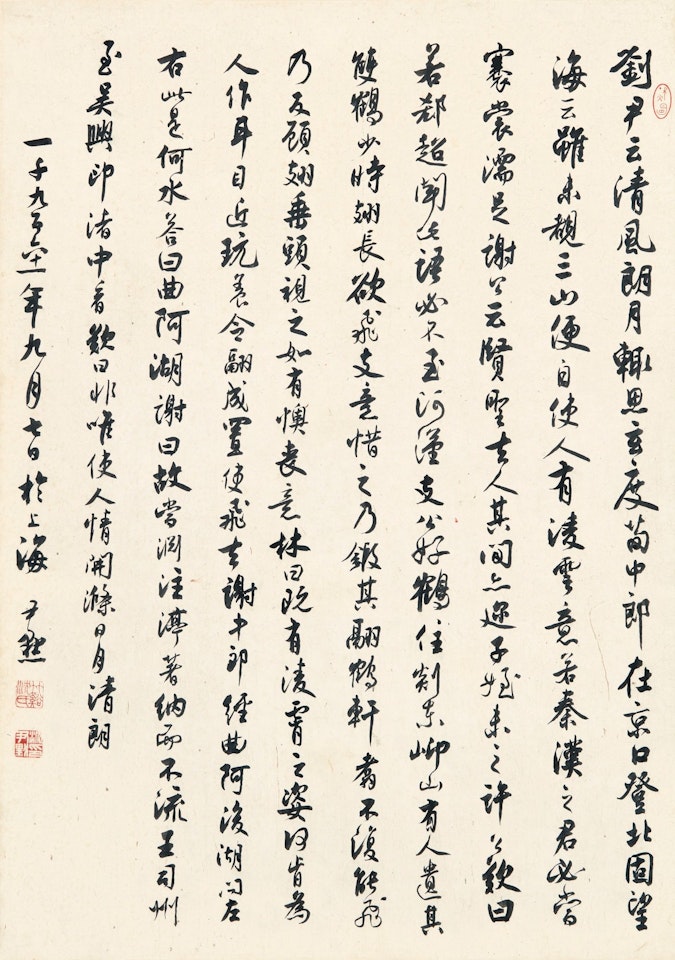 劉尹云清風朗月輒思玄度荀中郎在京口登北固望
海云雖未覩三山便自使人有淩雲意若秦漢之君必當
褰裳濡足謝公云賢聖去人其間亦邇子姪未之許公歎曰
若郗超聞此語必不至河漢支公好鶴住剡東岇山有人遺其
雙鶴少時翅長欲飛支意惜之乃鎩其翮鶴軒翥不復能飛
乃反顧翅垂頭視之如有懊喪意林曰既有淩霄之姿何肯為
人作耳目近玩養令翮成置使飛去謝中郎經曲阿後湖問左
右此是何水荅曰曲阿湖謝曰故當淵注渟著納而不流王司州
至吳興印渚中看歎曰非唯使人情開滌日月清朗
一千九百六十一年九月七日於上海 尹默